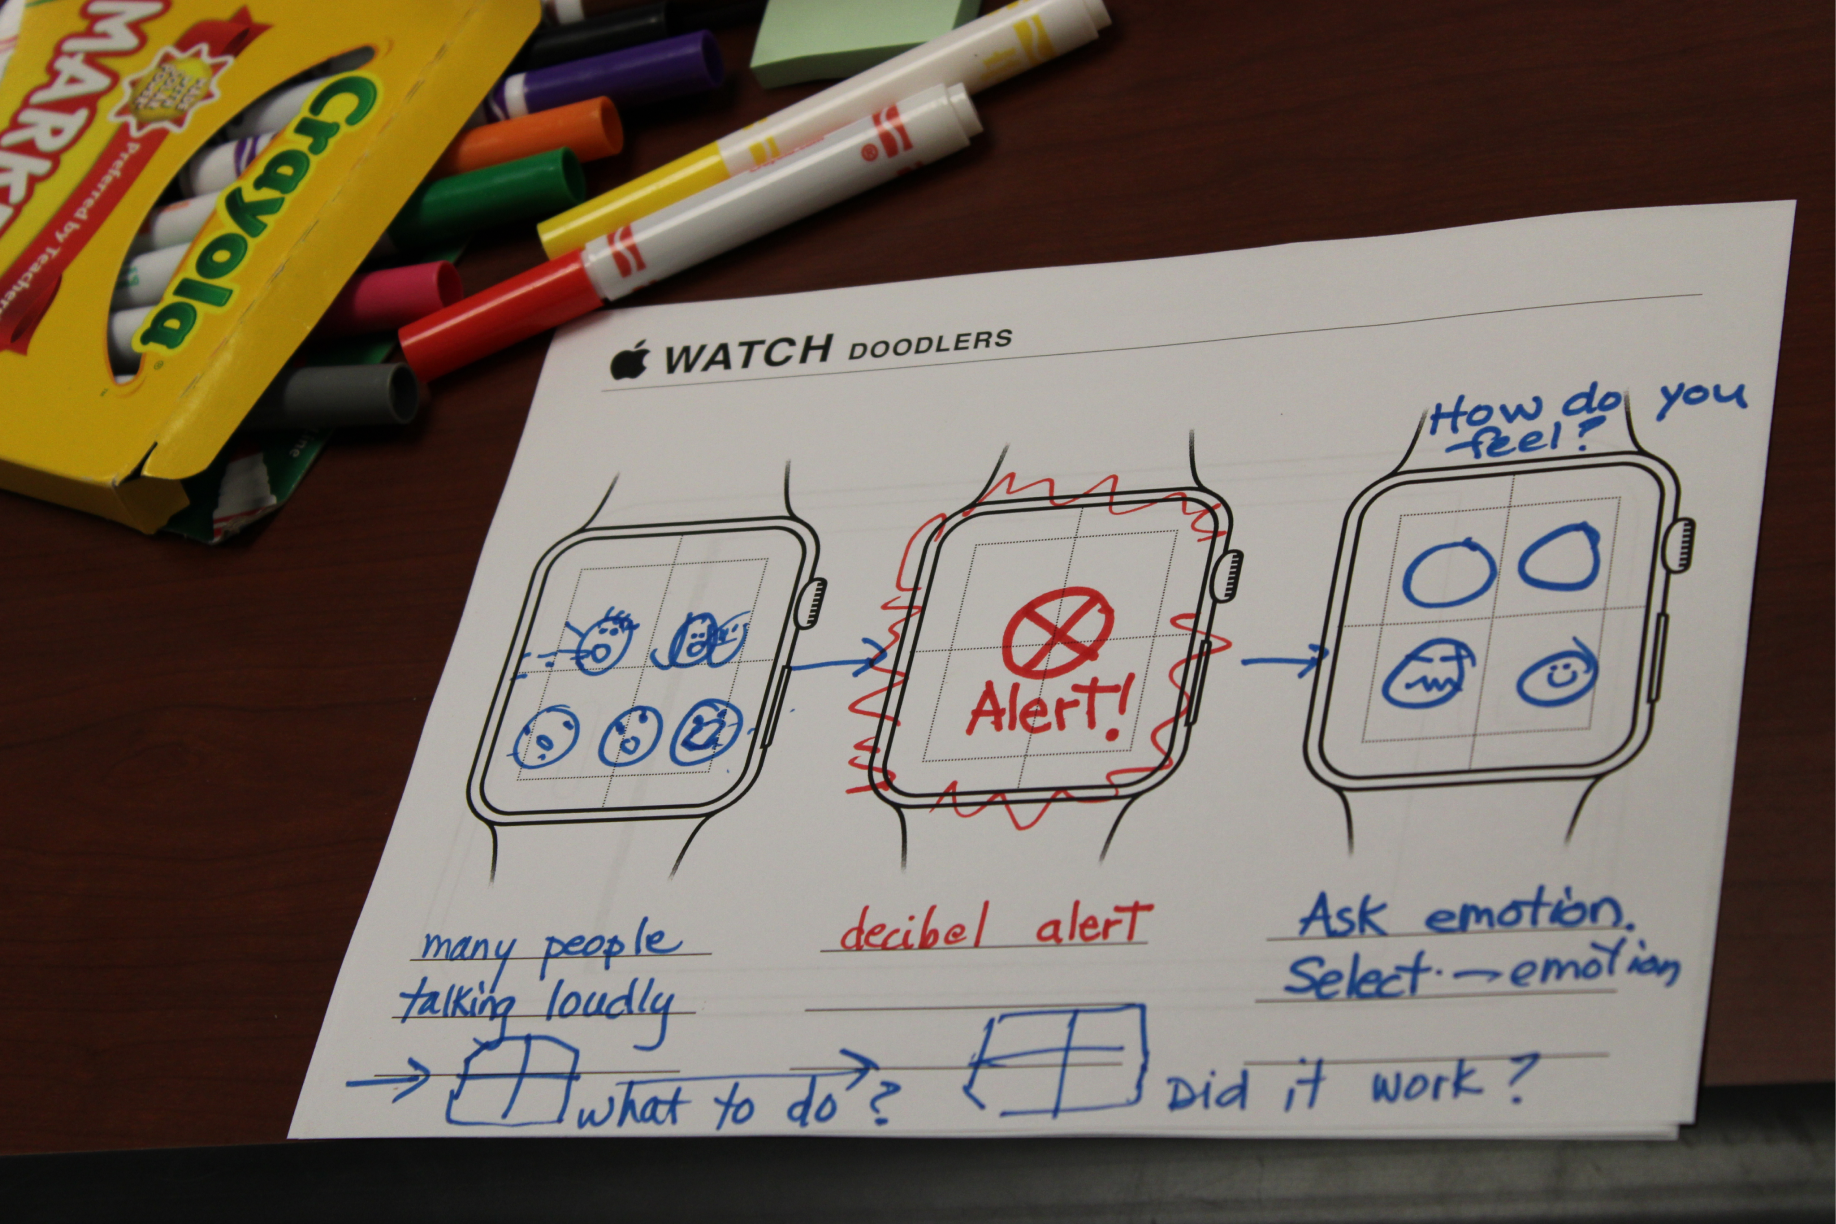 MARK
Preferred by Teachers
Crayola
WATCH DOODLERS
How do you
feel?
Alert!
many people
talking loudly
decibel alert
Ask emotion.
Select → emotion
→ what to do?
→ Did it work?